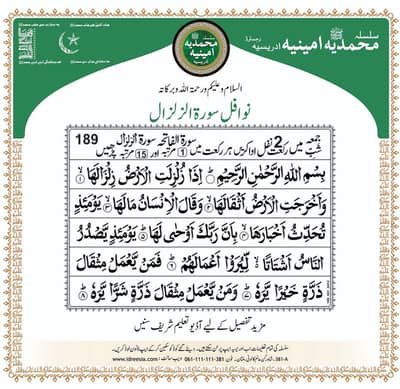 سلسلہ
محمدیہ امینیہ ادریسیہ
محمدیہ
امینیہ
ادریسیہ
السلام وعلیکم ورحمۃ اللہ وبرکاتہ
نوافل سورۃ الزلزال
جمعہ شب میں 2 رکعت نفل ادا کریں ہر رکعت میں سورۃ الفاتحہ 1 مرتبہ اور سورۃ الزلزال 15 مرتبہ پڑھیں 189
بِسْمِ اللهِ الرَّحْمٰنِ الرَّحِيْمِ اِذَا زُلْزِلَتِ الْاَرْضُ زِلْزَالَهَا ۝۱
وَاَخْرَجَتِ الْاَرْضُ اَثْقَالَهَا ۝۲ وَقَالَ الْاِنْسَانُ مَا لَهَا ۝۳ يَوْمَئِذٍ
تُحَدِّثُ اَخْبَارَهَا ۝۴ بِاَنَّ رَبَّكَ اَوْحٰى لَهَا ۝۵ يَوْمَئِذٍ يَّصْدُرُ
النَّاسُ اَشْتَاتًا ۙ لِّيُرَوْا اَعْمَالَهُمْ ۝۶ فَمَنْ يَّعْمَلْ مِثْقَالَ
ذَرَّةٍ خَيْرًا يَّرَهٗ ۝۷ وَمَنْ يَّعْمَلْ مِثْقَالَ ذَرَّةٍ شَرًّا يَّرَهٗ ۝۸
مزید تفصیل کے لیے آڈیو تعلیم شریف سنیں
www.idreesia.com 061-111-111-381